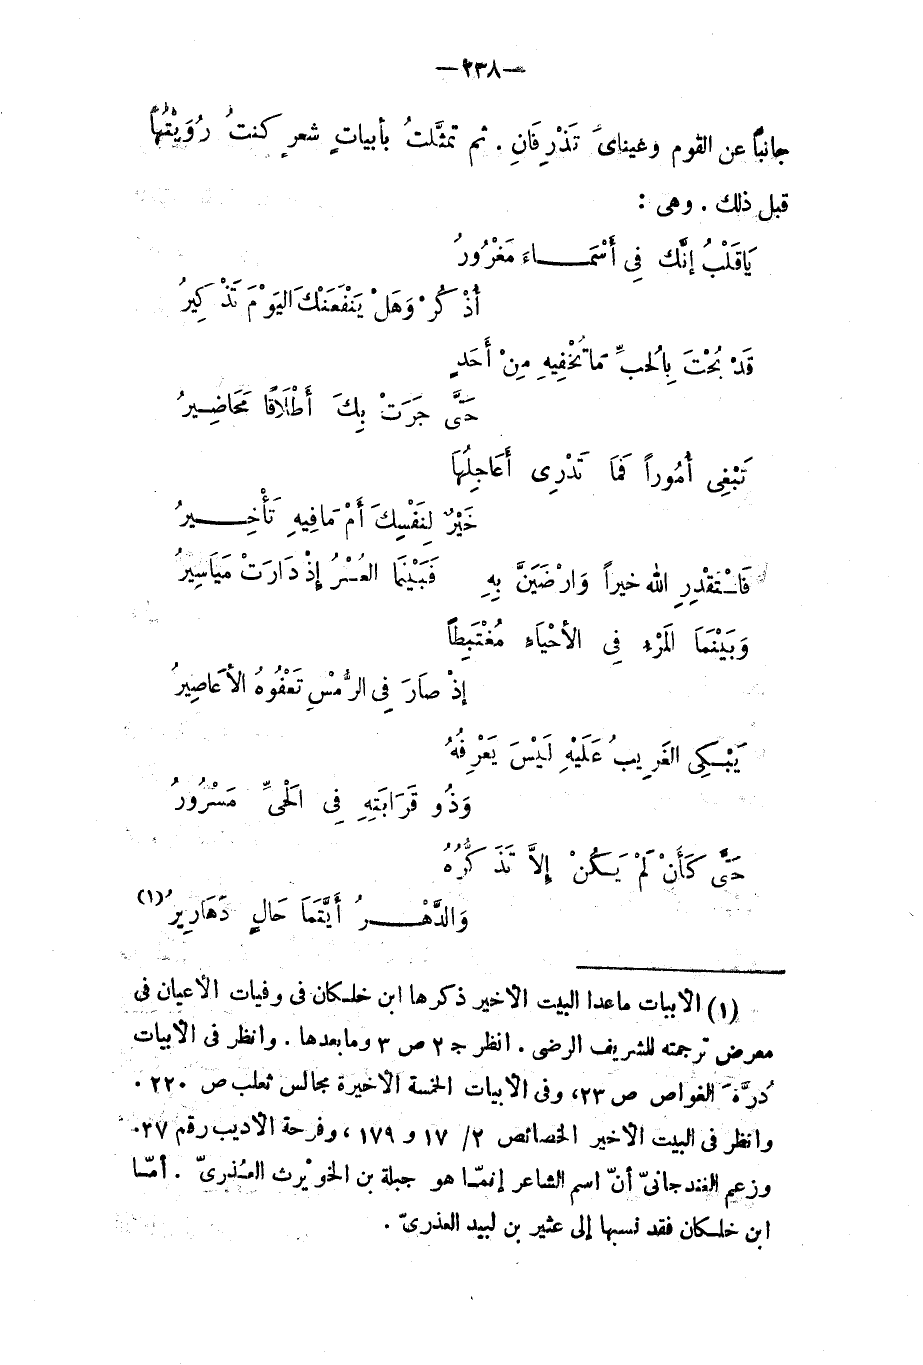 —٢٣٨—
جانباً عن القوم وعيناىَ تَذْرِفَانِ . ثم تمثَّلتُ بأبياتِ شعرٍ كنتُ رُوَيْتُها
قبل ذلك . وهى :
يَاقَلْبُ إنَّكَ فِى أَسْمَــاءَ مَغْرُورُ
أُذْكُرْ وَهَلْ يَنْفَعَنْكَ اليَوْمَ تَذْكِيرُ
قَدْ بُحْتَ بِالحبِّ مَا تُخْفِيهِ مِنْ أَحَدٍ
حَتَّى جَرَتْ بِكَ أَطْلَاقًا مَحَاضِيرُ
تَبْغِى أُمُوراً فَمَا تَدْرِى أَعَاجِلُهَا
خَيْرٌ لِنَفْسِكَ أَمْ مَافِيهِ تَأْخِــيرُ
فَاسْتَقْدِرِ الله خيراً وَارْضَيَنَّ بِهِ فَبَيْنَمَا العُسْرُ إِذْ دَارَتْ مَيَاسِيرُ
وَبَيْنَمَا المَرْءِ فِى الأحْيَاءِ مُغْتَبِطاً
إذْ صَارَ فِى الرُّمْسِ تَعْفُوهُ الأَعَاصِيرُ
يَبْكِى الغَرِيبُ عَلَيْهِ لَيْسَ يَعْرِفُهُ
وَذُو قَرَابَتِهِ فِى الَحْىِّ مَسْرُورُ
حَتَّى كَأَنْ لَمْ يَكُنْ إِلاَّ تَذَكُّرُهُ
وَالدَّهْــرُ أَيَّتَمَا حَالٍ دَهَارِيرُ (١)
(١) الأبيات ماعدا البيت الأخير ذكرها ابن خلـكان فى وفيات الأعيان فى
معرض ترجمته للشريف الرضى . انظر جـ ٢ ص ٣ ومابعدها . وانظر فى الأبيات
دُرَّة الغواص ص ٢٣، وفى الأبيات الخمسة الأخيرة مجالس ثعلب ص ٢٢٠ .
وانظر فى البيت الأخير الخصائص ٢/ ١٧ و ١٧٩ ، وفرحة الأديب رقم ٢٧.
وزعم الغندجانىّ أنّ اسم الشاعر إنمّـا هو جبلة بن الحُوَيْرث العُذرىّ . أمّـا
ابن خلـكان فقد نسبها إلى عثير بن لبيد العذرىّ .